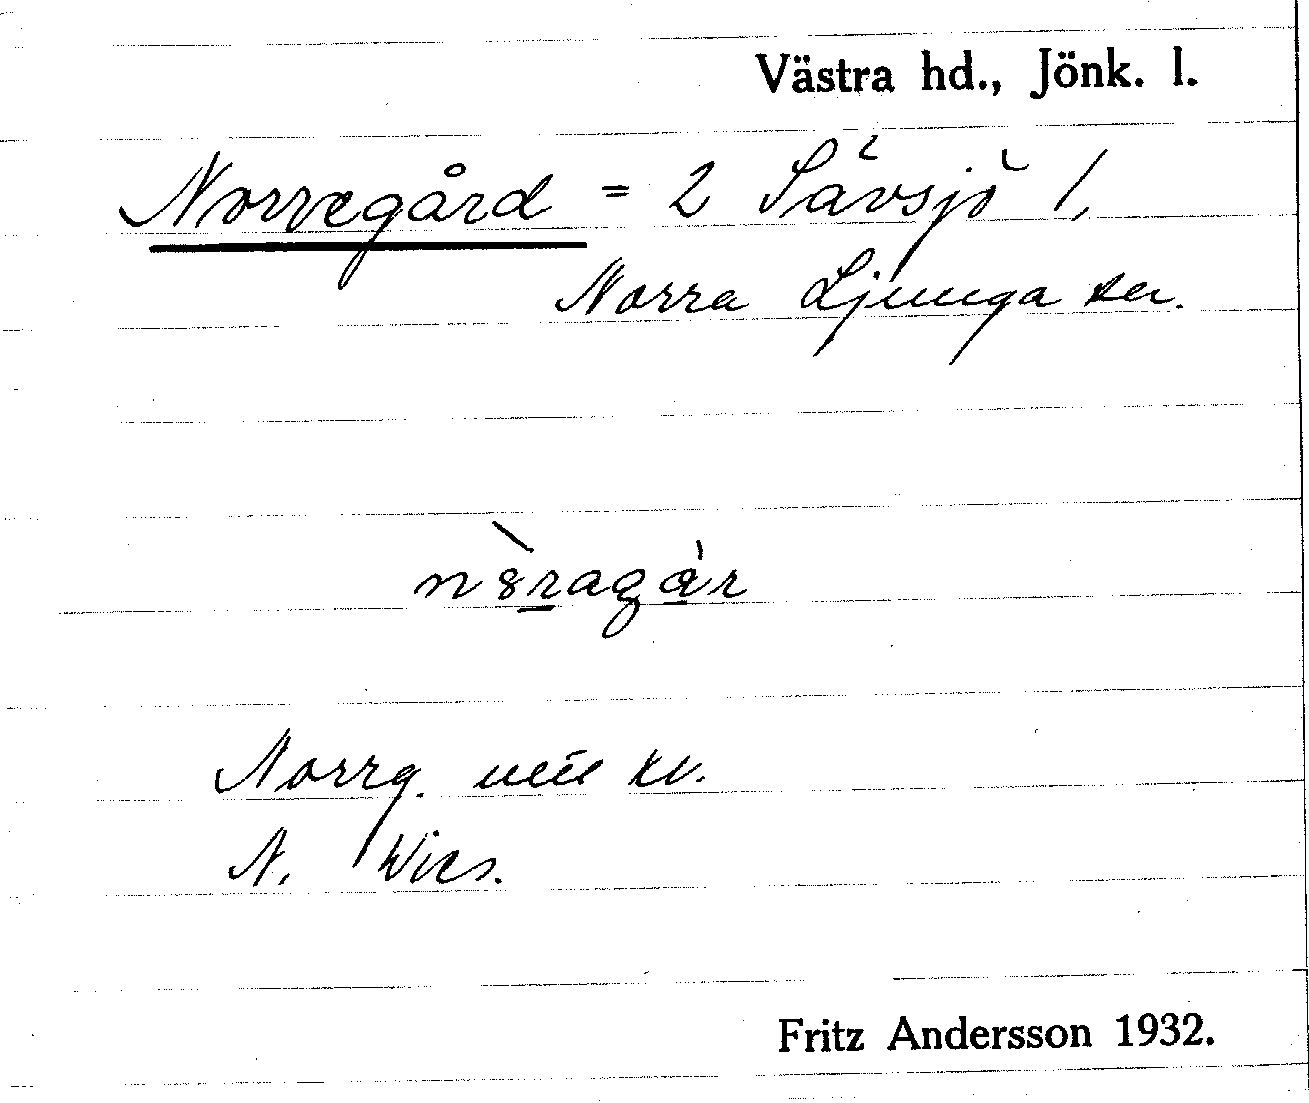 Västra hd., Jönk. l.
Norregård = 2 Sävsjö 1,
Norra Ljunga sn.
Norrg.
N. Wies.
Fritz Andersson 1932.